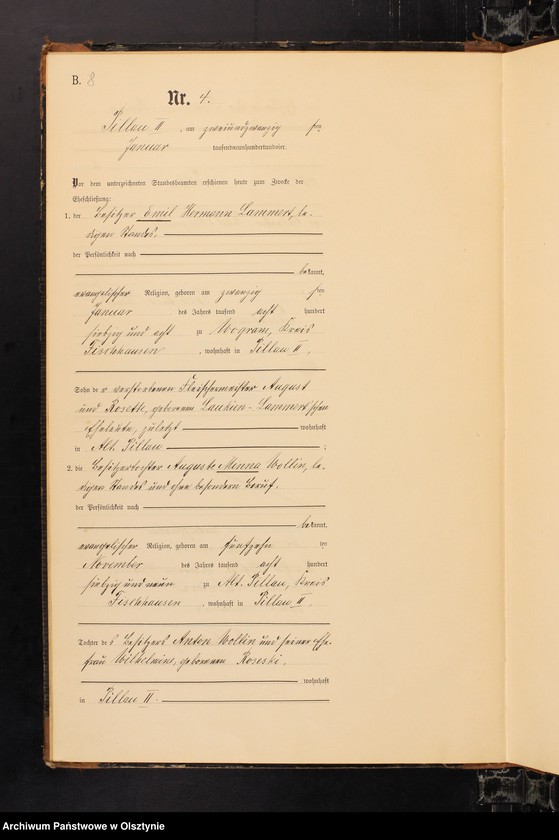 B. 8
Nr. 4.
Pillau II, am zweiundzwanzig ten
Januar tausendneunhundertundvier.
Vor dem unterzeichneten Standesbeamten erschienen heute zum Zwecke der
Eheschließung:
1. der Besitzer Emil Hermann Lammert, le-
digen Standes,
der Persönlichkeit nach
bekannt,
evangelischer Religion, geboren am zwanzig ten
Januar des Jahres tausend acht hundert
siebzig und acht zu Wogram, Kreis
Fischhausen, wohnhaft in Pillau II,
Sohn der verstorbenen Fleischermeister August
und Rosette, geborenen Lammert'schen
Eheleute, zuletzt wohnhaft
in Alt. Pillau;
2. die Besitzertochter Auguste Minna Wollin, le-
digen Standes und ohne besondern Beruf,
der Persönlichkeit nach
bekannt,
evangelischer Religion, geboren am fünfzehn ten
November des Jahres tausend acht hundert
siebzig und neun zu Alt. Pillau, Kreis
Fischhausen, wohnhaft in Pillau II,
Tochter des Besitzers Anton Wollin und seiner Ehe-
frau Wilhelmine, geborenen
wohnhaft
in Pillau II.
Archiwum Państwowe w Olsztynie